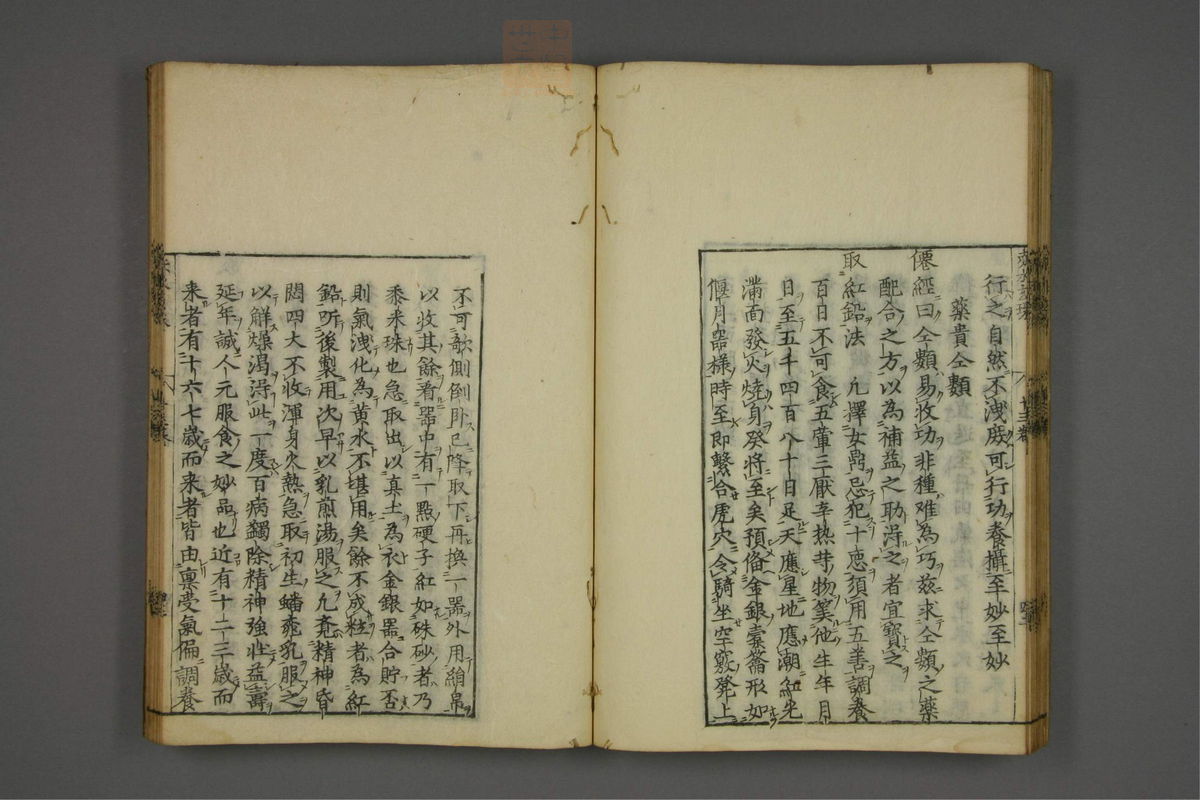 行之自然不洩庶可行功養攝至妙至妙
藥貴仝類
僊經曰仝類易收功非種难為巧兹求仝類之藥
配合之方以為補益之助淂之者宜寳之
取紅鉛法 凡擇女鼎忌犯十惡須用五善調養
百日不可食五葷三厭辛热等物筭他生年月
日至五千四百八十日足天應星地應潮紅光
滿面發火燒身癸將至矣預俻金銀橐籥形如
偃月噐様時至即繫合虎穴令騎坐空竅凳上
不可欹側倒卧已降取下再換一器外用絹帛
以收其餘看器中有一點硬子紅如硃砂者乃
黍米珠也急取出以真土為衣金銀器合貯否
則氣洩化為黄水不堪用矣餘不成粒者為紅
鉛听後製用次早以乳煎湯服之凢竟精神昏
悶四大不收渾身火熱急取初生蟠龍乳服之
以解燥渴淂此一度百病蠲除精神強壮益壽
延年誠人元服食之妙品也近有十二三歳而
来者有十六七歳而来者皆由禀受氣偏調養